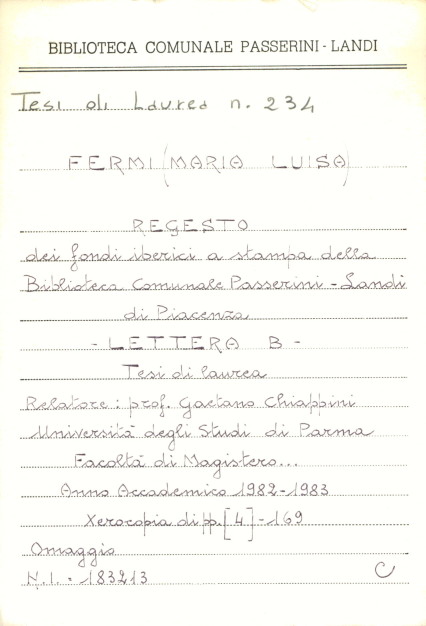 BIBLIOTECA COMUNALE PASSERINI - LANDI
Tesi di Laurea n. 234
FERMI (MARIA LUISA)
REGESTO
dei fondi iberici a stampa della
Biblioteca Comunale Passerini - Landi
di Piacenza
- LETTERA B -
Tesi di laurea
Relatore : prof. Gaetano Chiappini
Università degli Studi di Parma
Facoltà di Magistero...
Anno Accademico 1982-1983
Xerocopia di pp. [4] - 169
Omaggio
N.I. = 183213 C